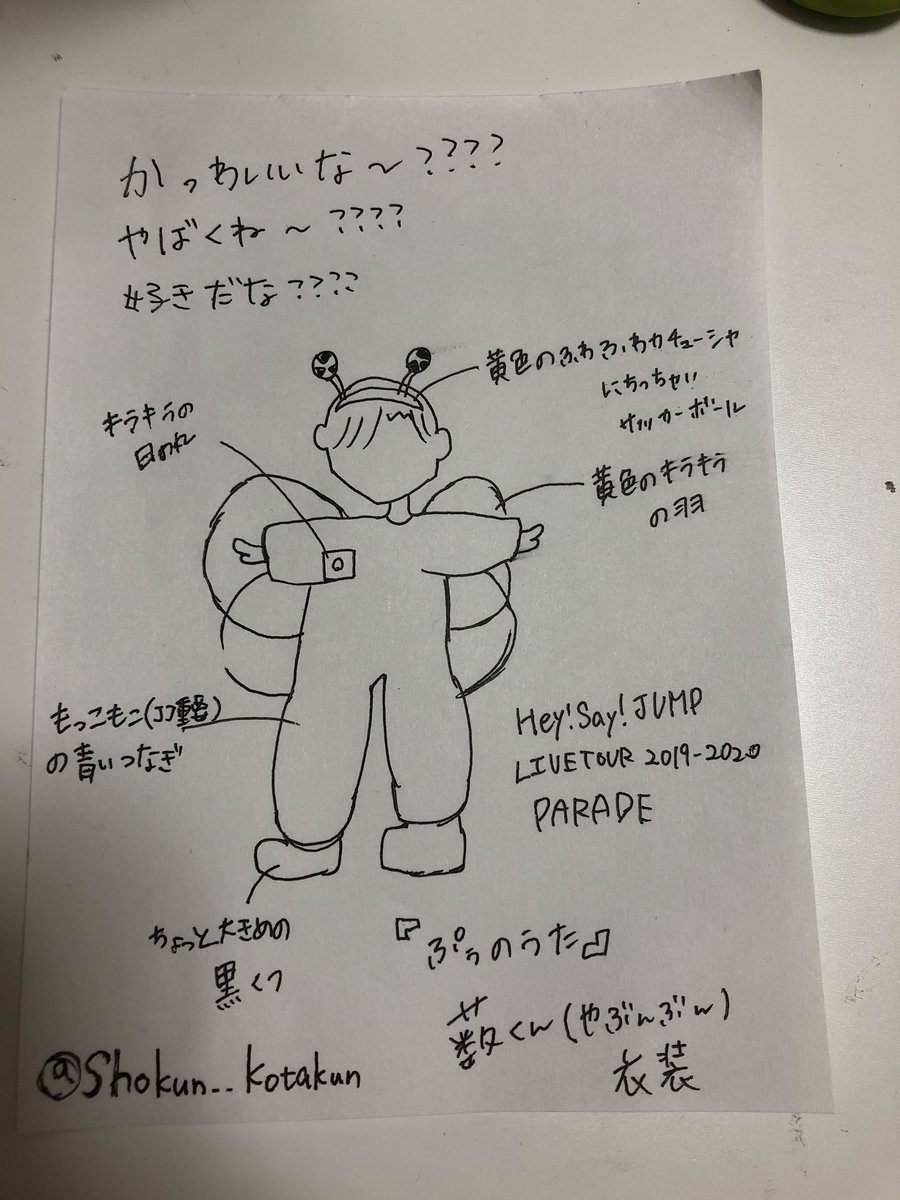 かっわいいな～????
やばくね～????
好きだな????
黄色のふわふわカチューシャ
にちっちゃい
サッカーボール
キラキラの
日のれ
黄色のキラキラ
の羽
もっこもこ(ココ重要)
の青いつなぎ
Hey!Say!JUMP
LIVETOUR 2019-2020
PARADE
ちょっと大きめの
黒くつ
『ぷぅのうた』
薮くん(やぶんぶん)
衣装
@Shokun__kotakun